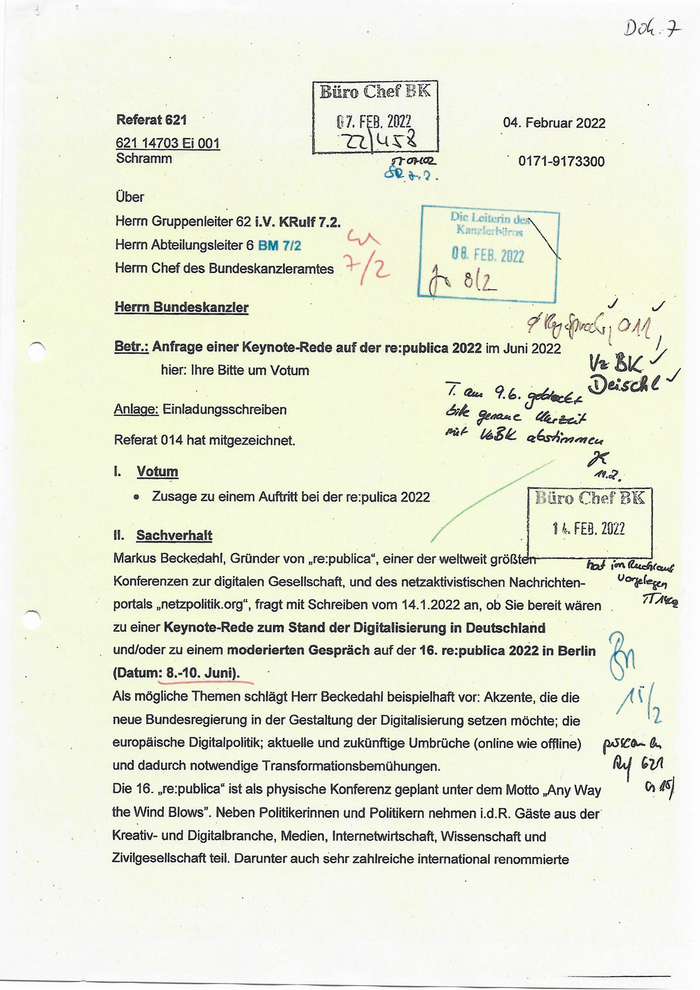 Dok. 7
Büro Chef BK
07. FEB. 2022
22/458
Referat 621
04. Februar 2022
621 14703 Ei 001
Schramm
0171-9173300
Über
Herrn Gruppenleiter 62 i.V. KRulf 7.2.
Herrn Abteilungsleiter 6 BM 7/2
Herrn Chef des Bundeskanzleramtes
7/2
Die Leiterin des
Kanzlerbüros
08. FEB. 2022
8/2
Herrn Bundeskanzler
011,
Betr.: Anfrage einer Keynote-Rede auf der re:publica 2022 im Juni 2022
hier: Ihre Bitte um Votum
Vz BK
Deischl
T. am 9.6. geblockt
bitte genaue Uhrzeit
mit VzBK abstimmen
11.2.
Anlage: Einladungsschreiben
Referat 014 hat mitgezeichnet.
I. Votum
• Zusage zu einem Auftritt bei der re:pulica 2022
Büro Chef BK
14. FEB. 2022
hat im Rücklauf
vorgelegen
II. Sachverhalt
Markus Beckedahl, Gründer von „re:publica“, einer der weltweit größten
Konferenzen zur digitalen Gesellschaft, und des netzaktivistischen Nachrichten-
portals „netzpolitik.org“, fragt mit Schreiben vom 14.1.2022 an, ob Sie bereit wären
zu einer Keynote-Rede zum Stand der Digitalisierung in Deutschland
und/oder zu einem moderierten Gespräch auf der 16. re:publica 2022 in Berlin
(Datum: 8.-10. Juni).
15/2
Als mögliche Themen schlägt Herr Beckedahl beispielhaft vor: Akzente, die die
neue Bundesregierung in der Gestaltung der Digitalisierung setzen möchte; die
europäische Digitalpolitik; aktuelle und zukünftige Umbrüche (online wie offline)
und dadurch notwendige Transformationsbemühungen.
Ref 621
Die 16. „re:publica“ ist als physische Konferenz geplant unter dem Motto „Any Way
the Wind Blows“. Neben Politikerinnen und Politikern nehmen i.d.R. Gäste aus der
Kreativ- und Digitalbranche, Medien, Internetwirtschaft, Wissenschaft und
Zivilgesellschaft teil. Darunter auch sehr zahlreiche international renommierte